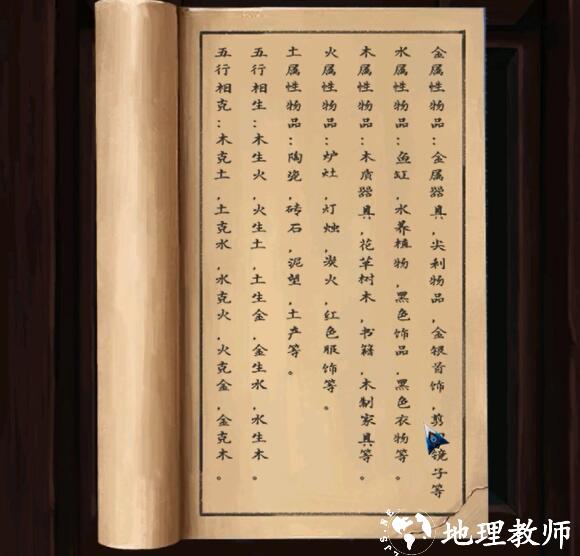 金属性物品:金属器具,尖利物品,金银首饰,剪镜子等
水属性物品:鱼缸,水养植物,黑色饰品,黑色衣物等。
木属性物品:木质器具,花草树木,书籍,木制家具等。
火属性物品:炉灶,灯烛,炭火,红色服饰等。
土属性物品:陶瓷,砖石,泥塑,土产等。
五行相生:木生火,火生土,土生金,金生水,水生木。
五行相克:木克土,土克水,水克火,火克金,金克木。
地理教师